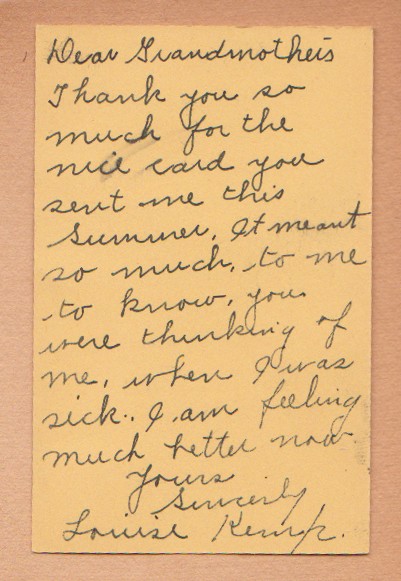 Dear Grandmothers
Thank you so
much for the
nice card you
sent me this
Summer. It meant
so much, to me
to know, you
were thinking of
me, when I was
sick. I am feeling
much better now
Yours
Sincerly
Louise Kemp.